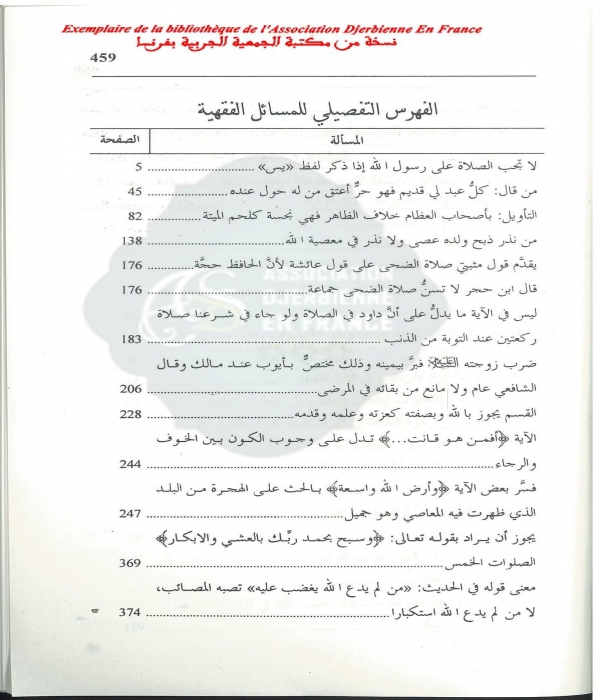 Exemplaire de la bibliothèque de l'Association Djerbienne En France
نسخة من مكتبة الجمعية الجربية بفرنسا
459
الفهرس التفصيلي للمسائل الفقهية
المسألة الصفحة
لا تجب الصلاة على رسول الله إذا ذكر لفظ «يس» ............ 5
من قال: كلُّ عبد لي قديم فهو حرٌّ أعتق من له حول عنده ............ 45
التأويل: بأصحاب العظام خلاف الظاهر فهي نجسة كلحم الميتة ............ 82
من نذر ذبح ولده عصى ولا نذر في معصية الله ............ 138
يقدَّم قول مثبتي صلاة الضحى على قول عائشة لأنَّ الحافظ حجَّة ............ 176
قال ابن حجر لا تسنُّ صلاة الضحى جماعة ............ 176
ليس في الآية ما يدلُّ على أنَّ داود في الصلاة ولو جاء في شرعنا صلاة
ركعتين عند التوبة من الذنب ............ 183
ضرب زوجته العَلَيْهِ السَّلام فبرَّ بيمينه وذلك مختصٌّ بأيوب عند مالك وقال
الشافعي عام ولا مانع من بقائه في المرضى ............ 206
القسم يجوز بالله وبصفته كعزته وعلمه وقدمه ............ 228
الآية ﴿أفمن هو قانت...﴾ تدل على وجوب الكون بين الخوف
والرجاء ............ 244
فسَّر بعض الآية ﴿وأرض الله واسعة﴾ بالحث على الهجرة من البلد
الذي ظهرت فيه المعاصي وهو جميل ............ 247
يجوز أن يراد بقوله تعالى: ﴿وسبح بحمد ربِّك بالعشي والابكار﴾
الصلوات الخمس ............ 369
معنى قوله في الحديث: «من لم يدع الله يغضب عليه» تصبه المصائب،
لا من لم يدع الله استكبارا ............ 374
ASSOCIATION
DJERBIENNE
EN FRANCE